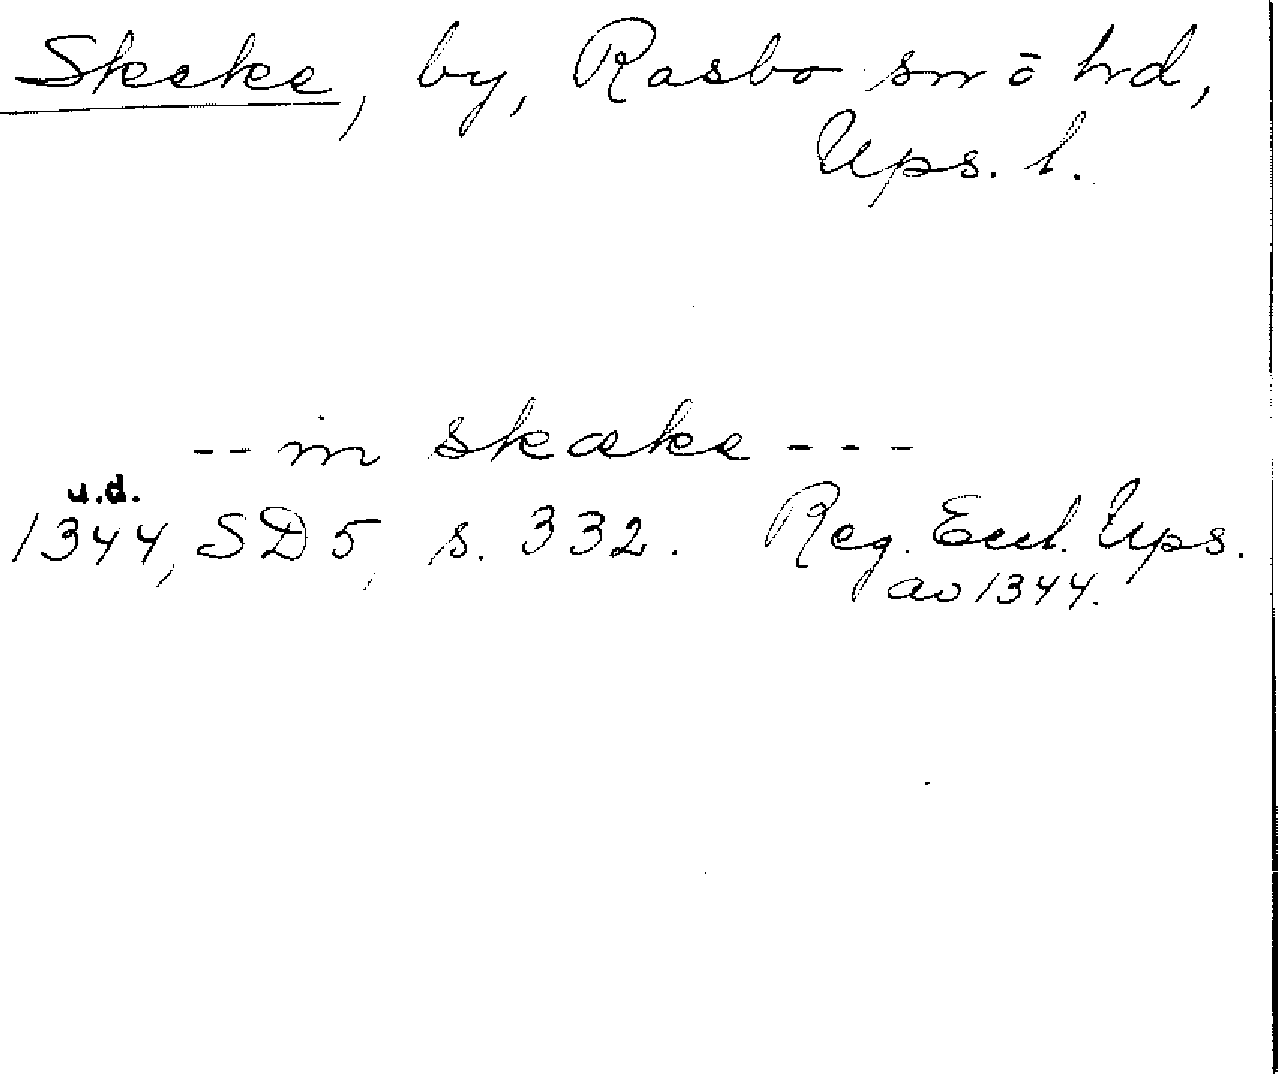 Skeke, by, Rasbo sn ō hd,
Ups. l.
-- in skæke ---
u.d.
1344, SD 5, s. 332. Reg. Eccl. Ups.
av 1344.